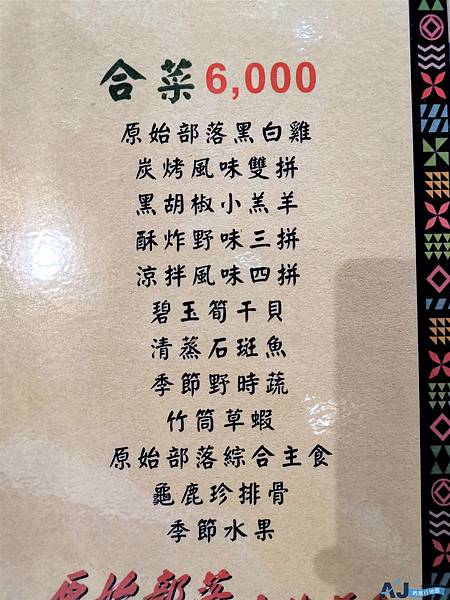 合菜 6,000
原始部落黑白雞
炭烤風味雙拼
黑胡椒小羔羊
酥炸野味三拼
涼拌風味四拼
碧玉筍干貝
清蒸石斑魚
季節野時蔬
竹筒草蝦
原始部落綜合主食
龜鹿珍排骨
季節水果
原始部落
AJ
的旅行地圖